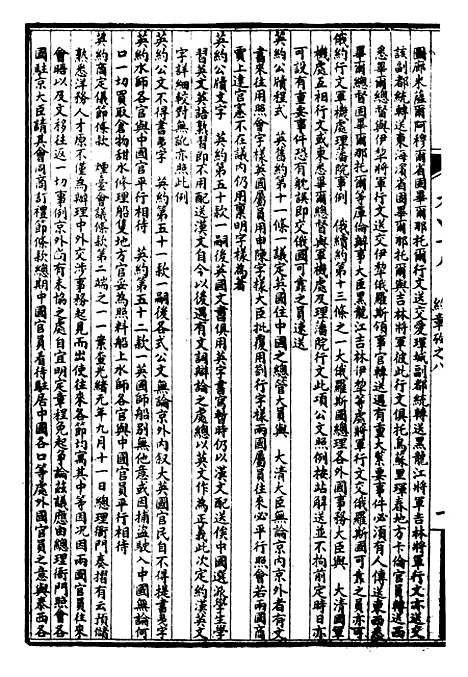 圖斯克薩爾阿穆爾省固畢爾那托爾行文送交愛琿城副都統轉送黑龍江將軍吉林將軍行文亦送交
該副都統轉送東海濱省固畢爾那托爾與吉林將軍彼此行文俱托烏蘇里琿春地方卡倫官員轉送西
悉畢爾總督與伊犂將軍行文送交伊犂俄羅斯領事官轉送遇有重大緊要事件必須有人傳送東西悉
畢爾總督固畢爾那托爾等庫倫辦事大臣黑龍江吉林伊犂等處將軍行文交俄羅斯國可靠之員亦可
俄約行文軍機處理藩院事例　俄續約第十三條之一大俄羅斯國總理各外國事務大臣與　大清國軍
機處互相行文或東悉畢爾總督與軍機處及理藩院行文此項公文照例按站解送並不拘前定時日亦
可設有重要事件恐有躭誤即交俄國可靠之員速送
英約公牘程式　英舊約第十一條一議定英國住中國之總管大員與　大清大臣無論京內京外者有文
書來往用照會字樣英國屬員用申陳字樣大臣批覆用劄行字樣兩國屬員往來必平行照會若兩國商
賈上達官憲不在議內仍用稟明字樣為著
英約公牘文字　英約第五十款一嗣後英國文書俱用英字書寫暫時仍以漢文配送俟中國選派學生學
習英文英語熟習即不用配送漢文自今以後遇有文詞辯論之處總以英文作為正義此次定約漢英文
字詳細較對無訛亦照此例
英約公文不得書夷字　英約第五十一款一嗣後各式公文無論京外內敘大英國官民自不得提書夷字
英約水師各官與中國官平行相待　英約第五十二款一英國師船別無他意或因捕盜駛入中國無論何
口一切買取食物甜水修理船隻地方官妥為照料船上水師各官與中國官員平行相待
英約商定儀節條款　煙臺會議條款第二端之一一案查光緒元年九月十一日總理衙門奏摺有云預儲
熟悉洋務人才原不僅為辦理中外交涉事務起見而出使往來各節均寓其中等因況因兩國官員往來
會晤以及文移往返一切事例京外尚有未協之處自宜明定章程免起爭論茲議應由總理衙門照會各
國駐京大臣請其會同商訂禮節條款總期中國官員看待駐居中國各口等處外國官員之意與泰西各
約章卷之八